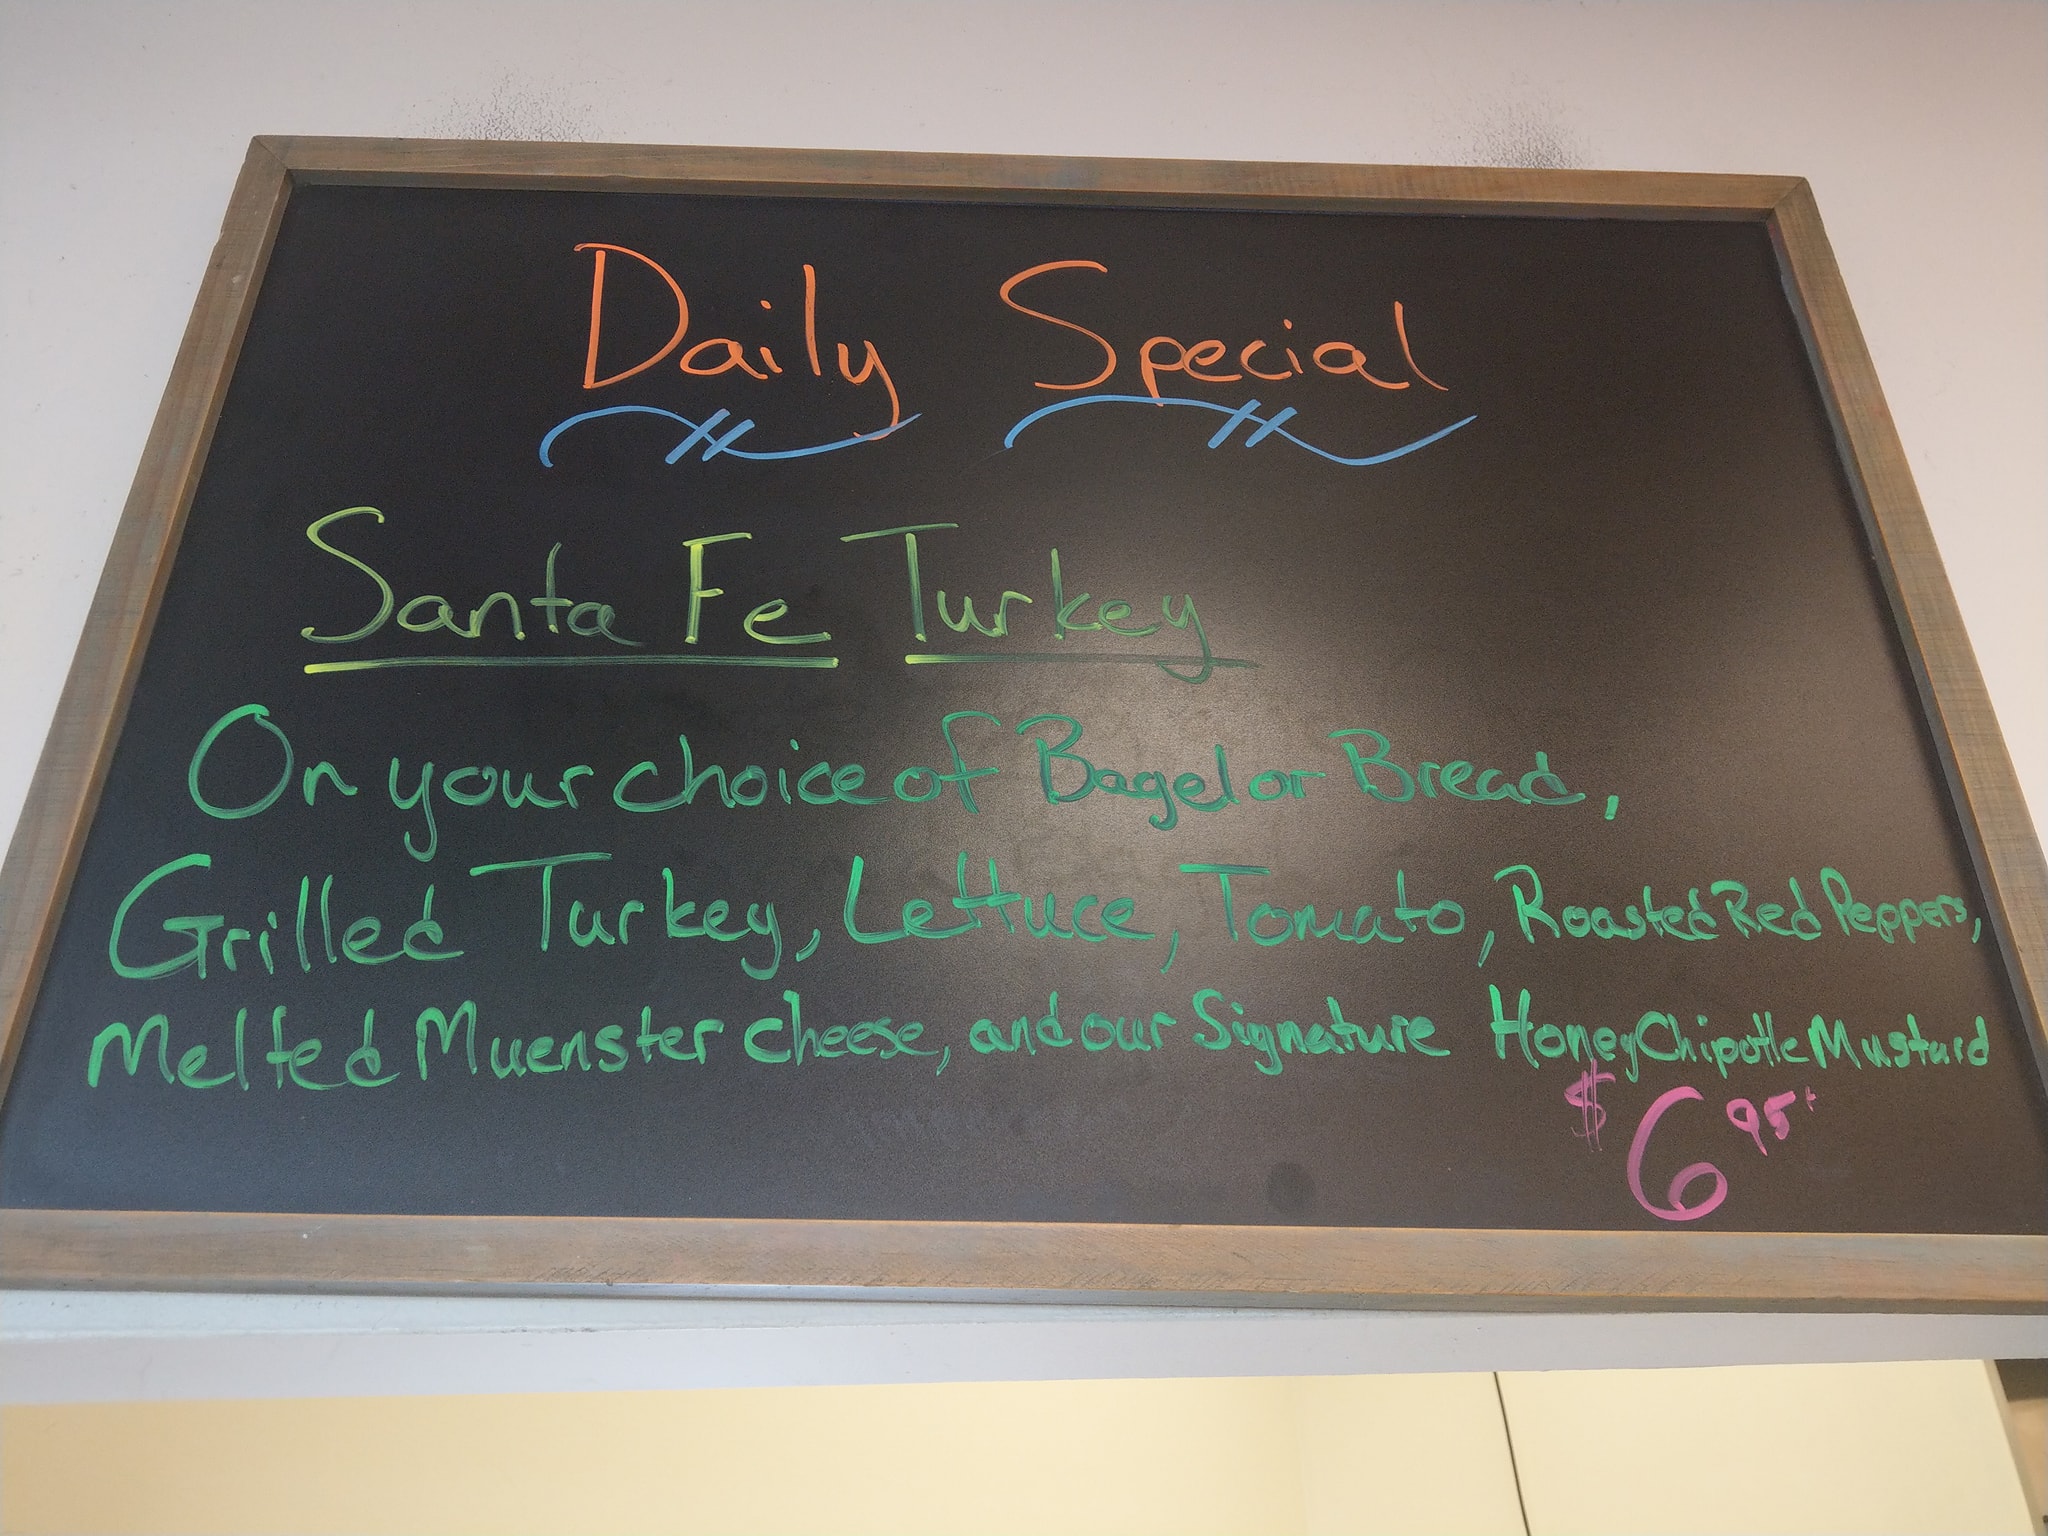 Daily Special
Santa Fe Turkey
On your choice of Bagel or Bread,
Grilled Turkey, Lettuce, Tomato, Roasted Red Peppers,
Melted Muenster cheese, and our Signature Honey Chipotle Mustard
$6 95+